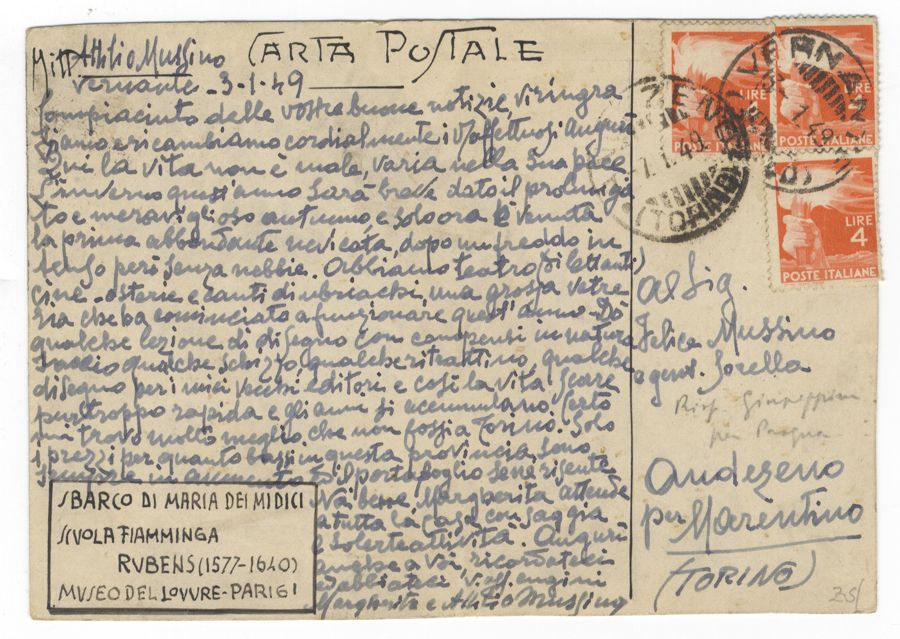 Mitt Attilio Mussino CARTA POSTALE
Vernante - 3-1-49
Compiaciuto delle vostre buone notizie, vi ringra
ziamo e ricambiamo cordialmente i V/ affettuosi auguri
Qui la vita non è male, varia nella sua pace
L'inverno quest'anno sarà breve dato il prolunga
to e meraviglioso autunno e solo ora è venuta
la prima abbondante nevicata, dopo un freddo in
tenso però senza nebbie. Abbiamo teatro (dilettanti)
cine - osterie e canti di ubriachi, una grossa vetre
ria che ha cominciato a funzionare quest'anno. Dò
qualche lezione di disegno con compensi in natura
Faccio qualche schizzo, qualche ritrattino, qualche
disegno per i miei vecchi editori e così la vita scorre
purtroppo rapida e gli anni si accumulano. Certo
mi trovo molto meglio che non fossi a Torino. Solo
i prezzi per quanto bassi in questa provincia sono
sempre in aumento e il portafoglio se ne risente
Va bene, Margherita attende
a tutta la casa con saggia
e solerte attività. Auguri
anche a voi, ricordateci
V/ aff. cugini
Margherita e Attilio Mussino
SBARCO DI MARIA DEI MIDICI
SCUOLA FIAMMINGA
RUBENS (1577-1640)
MUSEO DEL LOUVRE - PARIGI
LIRE
4
POSTE ITALIANE
LIRE
4
POSTE ITALIANE
LIRE
4
POSTE ITALIANE
7.1.49
(TORINO)
al Sig.
Felice Mussino
e gent. Sorella
per Pasqua
Andezeno
per Marentino
(TORINO)